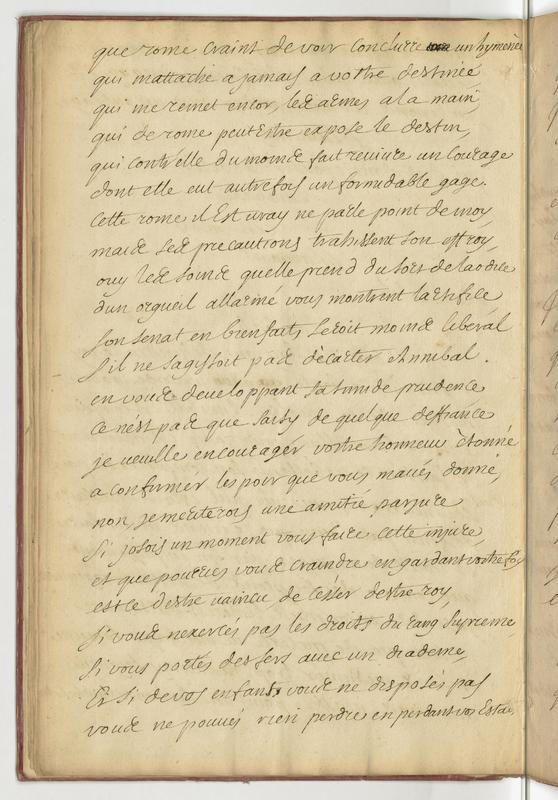 que rome craint de voir conclurre un hymenée
qui mattache a jamais a vostre destinée
qui me remet encor, les armes a la main,
qui de rome peut Estre expose le destin,
qui contr'elle du moins fait reuiure un courage
dont elle eut autrefois un formidable gage.
Cette rome il Est uray ne parle point de moy
mais ses precautions trahissent son effroy,
ouy les soins quelle prend du sort de laodice
dun orgueil allarmé vous montrent lartifice
son senat en bienfaits seroit moins liberal
s'il ne sagissoit pas décarter Annibal.
en vous developpant sa timide prudence
ce nést pas que saisy de quelque deffiance
je veuille encourager vostre honneur étonné
a confirmer lespoir que vous maués donné,
non, je meriterois une amitié parjure
si josois un moment vous faire cette injure,
et que pourries vous craindre en gardant vostre foy
est ce destre vaincu, de césser destre roy,
si vous nexercés pas les droits du rang supreme
si vous portés des fers auec un diademe,
Et si de vos enfants vous ne disposés pas
vous ne pouués rien perdre en perdant vos Estats,